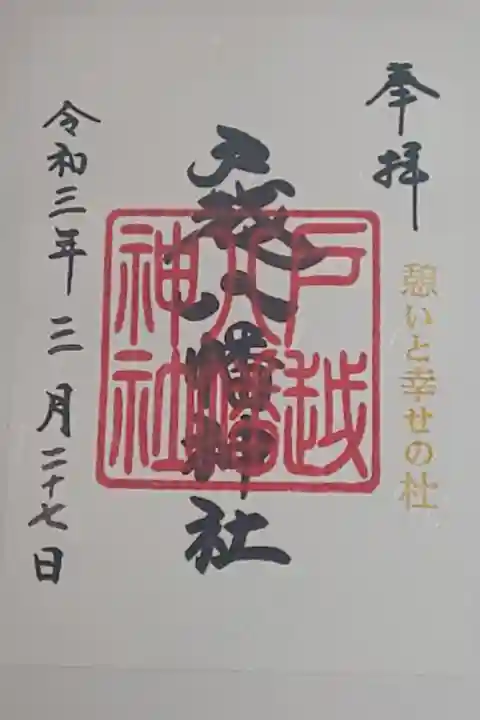 奉拝
憩いと幸せの杜
戸越八幡神社
戸越
八幡
神社
令和三年三月二十七日